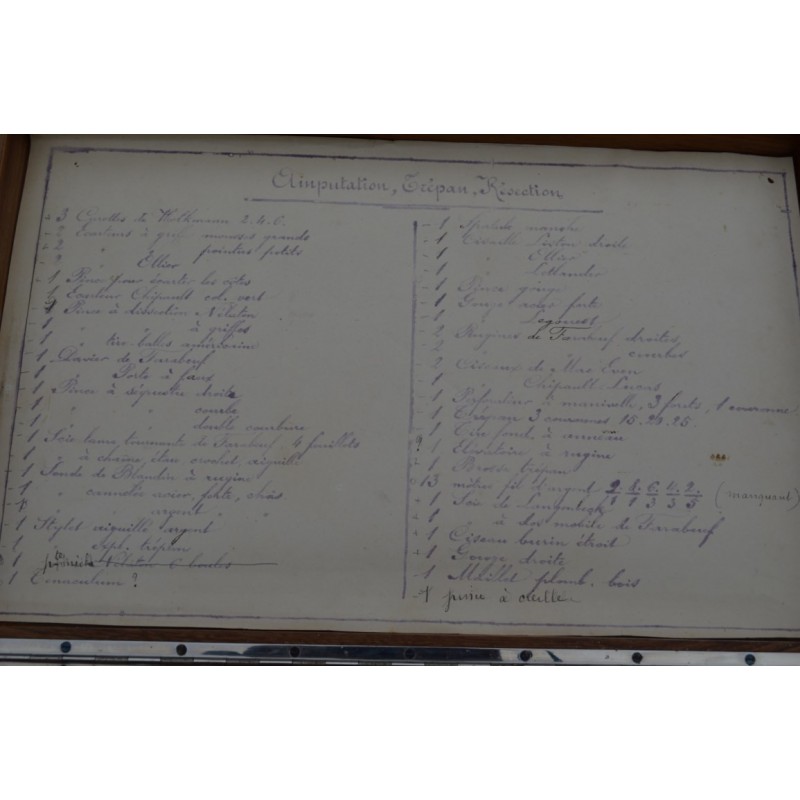 Amputation, Trépan, Résection
3 Curettes de Wolkmann 2.4.6.
2 Ecarteurs à griff. mousses grands
2 " " pointus petits
2 " Ollier
1 Pince pour écarter les côtes
1 Ecarteur Chipault col. vert
1 Pince à dissection Nélaton
1 " " à griffes
1 " tire-balles américain
1 Davier de Farabeuf
1 " Porte à faux
1 Pince à séquestre droite
1 " " courbe
1 " " double courbure
1 Scie lame tournante de Farabeuf 4 feuillets
1 " à chaîne, étau crochet, aiguille
1 Sonde de Blandin à rugine
1 " cannelée acier, fente,
1 " " argent " "
1 Stylet aiguille argent
1 " sept. trépan
1 Nélaton 6 boules
1 Connoulum ?
1 Spatule manche
1 Cisaille Liston droite
1 " Ollier
1 Pince gouge
1 Gouge
1 " Legouest
2 Rugines de Farabeuf droites,
2 " " courbes
2 Ciseaux de Mac Ewen
2 " Chipault
1 Perforateur à manivelle, 3 forets, 1 couronne
1 Trépan 3 couronnes 15.20.25.
1 Tire fond à anneau
1 Elévatoire à rugine
1 Brosse trépan
13 mètres fil d'argent (manquent)
1 Scie de Langenbeck
1 " à dos mobile de Farabeuf
1 Ciseau burin étroit
1 Gouge droite
1 Maillet plomb. bois
1 pince à